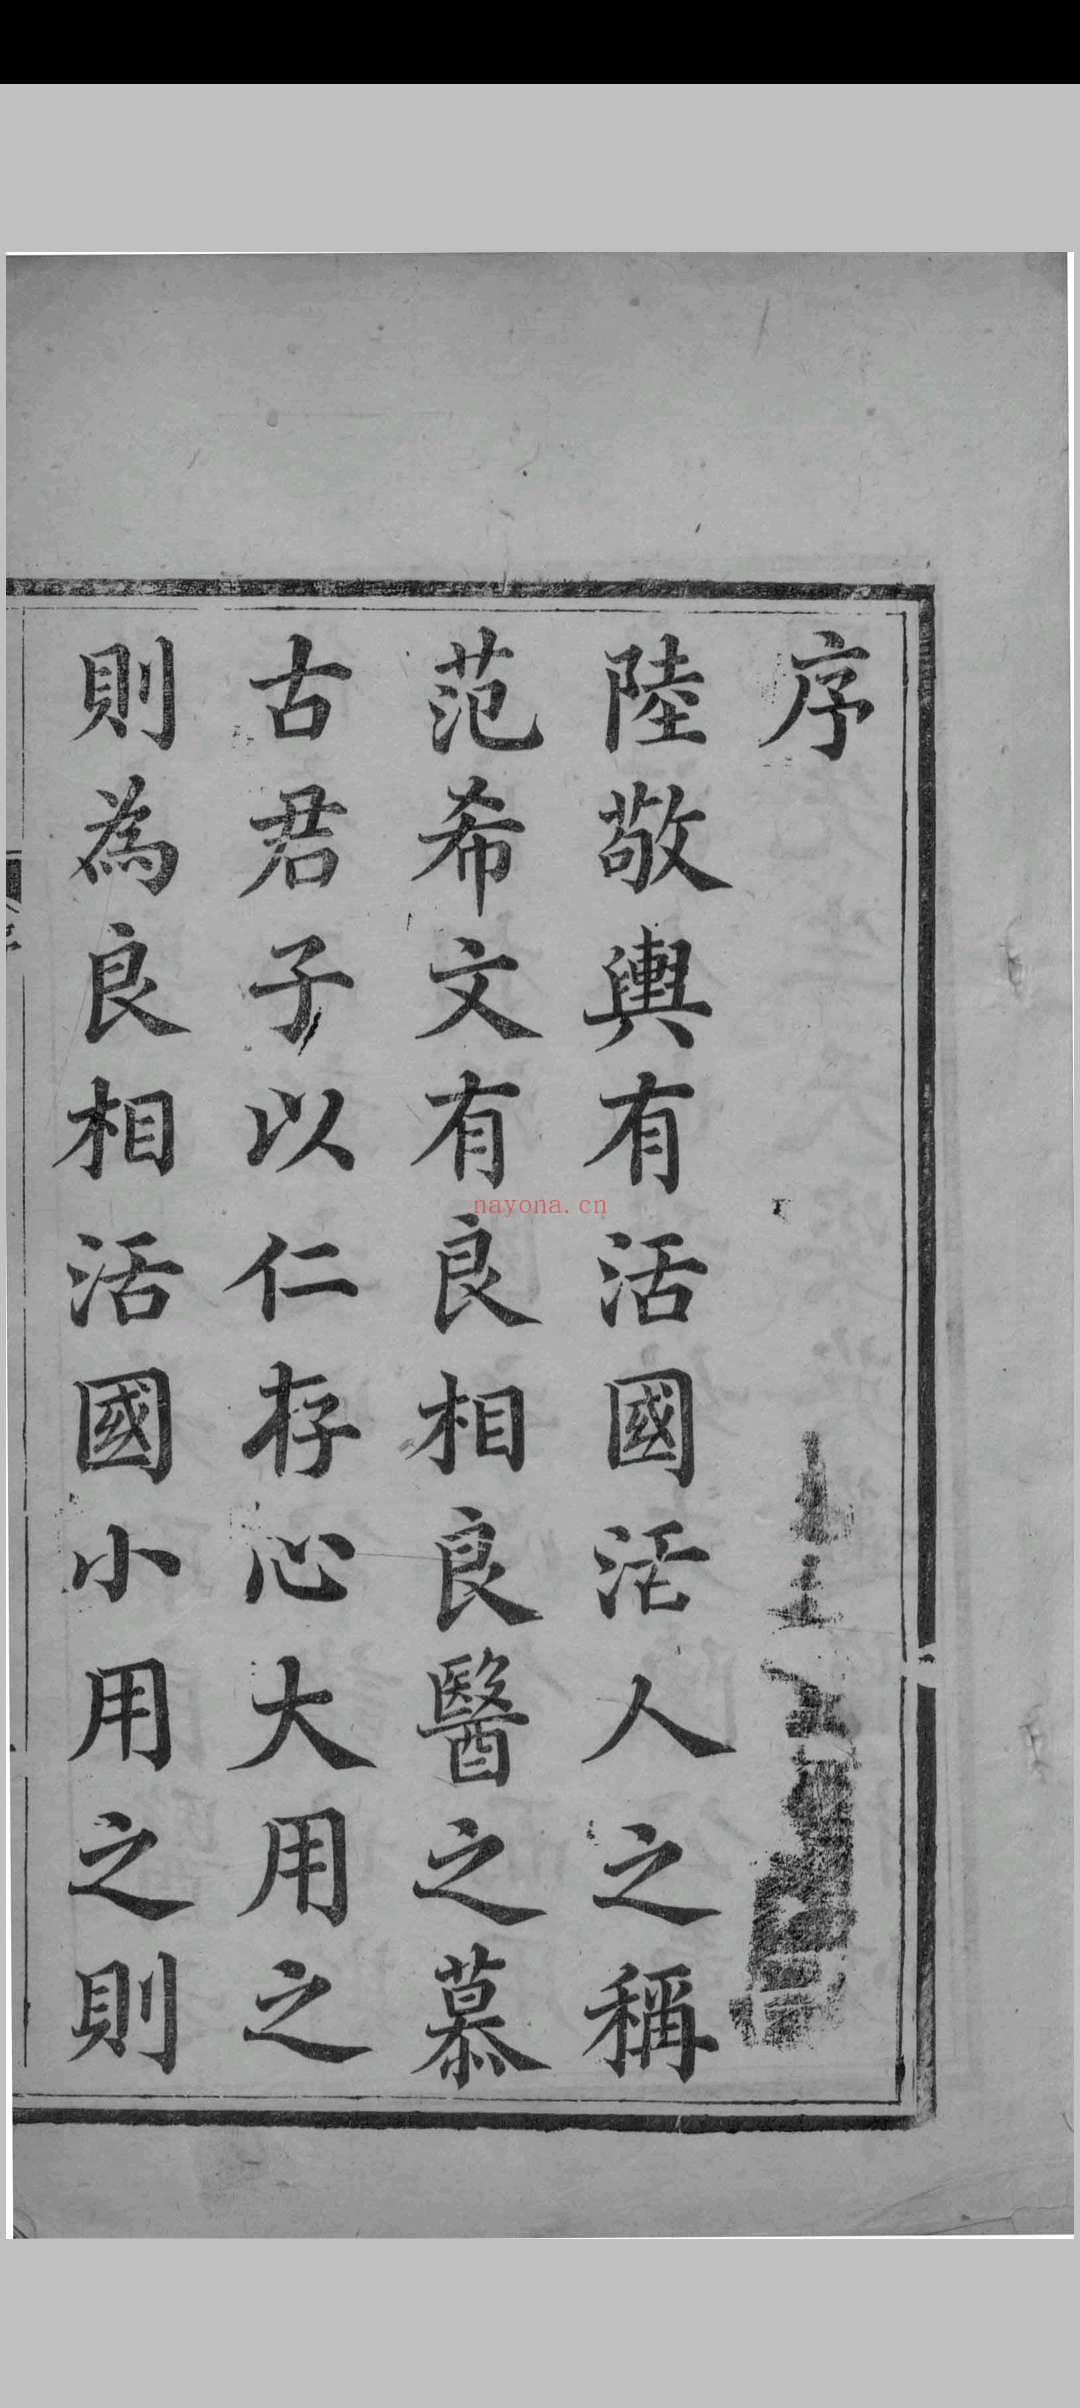 序
陸敬輿有活國活人之稱
范希文有良相良醫之慕
古君子以仁存心大用之
則為良相活國小用之則
nayona.cn